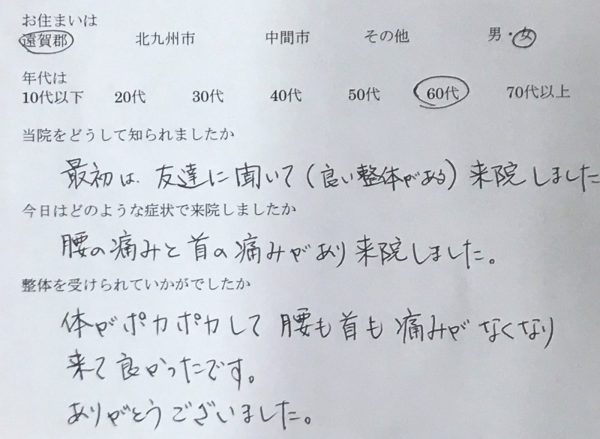 お住まいは
遠賀郡 北九州市 中間市 その他 男・女
年代は
10代以下 20代 30代 40代 50代 60代 70代以上
当院をどうして知られましたか
最初は、友達に聞いて(良い整体がある)来院しました
今日はどのような症状で来院しましたか
腰の痛みと首の痛みがあり来院しました。
整体を受けられていかがでしたか
体がポカポカして腰も首も痛みがなくなり
来て良かったです。
ありがとうございました。